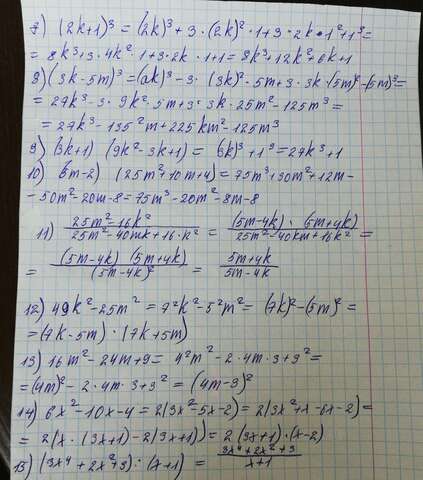 7) (2k+1)³ = (2k)³ + 3 · (2k)² · 1 + 3 · 2k · 1² + 1³ =
= 8k³ + 3 · 4k² · 1 + 3 · 2k · 1 + 1 = 8k³ + 12k² + 6k + 1
8) (3k - 5m)³ = (3k)³ - 3 · (3k)² · 5m + 3 · 3k · (5m)² - (5m)³ =
= 27k³ - 3 · 9k² · 5m + 3 · 3k · 25m² - 125m³ =
= 27k³ - 135²m + 225km² - 125m³
9) (3k+1) (9k² - 3k + 1) = (3k)³ + 1³ = 27k³ + 1
10) (5m-2) (25m² + 10m + 4) = 75m³ + 30m² + 12m -
- 50m² - 20m - 8 = 75m³ - 20m² - 8m - 8
11) (25m² - 16k²)/(25m² - 40mk + 16 · k²) = ((5m-4k) · (5m+4k))/(25m² - 40km + 16k²) =
= ((5m-4k) (5m+4k))/((5m-4k)²) = (5m+4k)/(5m-4k)
12) 49k² - 25m² = 7²k² - 5²m² = (7k)² - (5m)² =
= (7k - 5m) · (7k + 5m)
13) 16m² - 24m + 9 = 4²m² - 2 · 4m · 3 + 3² =
= (4m)² - 2 · 4m · 3 + 3² = (4m-3)²
14) 6x² - 10x - 4 = 2(3x² - 5x - 2) = 2(3x² + x - 6x - 2) =
= 2(x · (3x+1) - 2(3x+1)) = 2(3x+1) · (x-2)
15) (3x⁴ + 2x² + 3) : (x+1) = (3x⁴ + 2x² + 3)/(x+1)